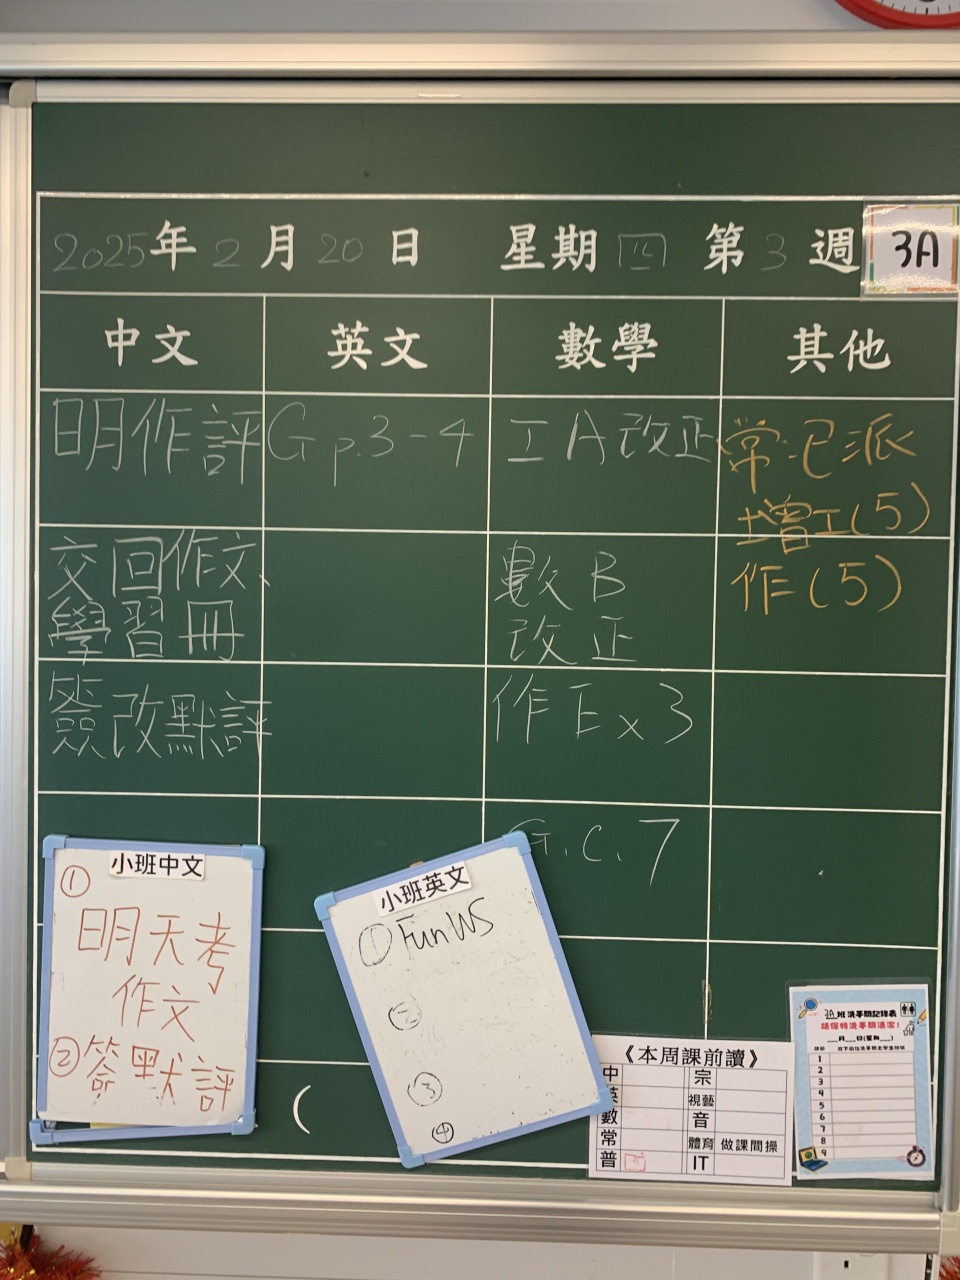 2025年2月20日 星期四 第3週
3A
中文 英文 數學 其他
明作評
交回作文、
學習冊
簽改默評
G p.3-4
工A改正
數B
改正
作Ex3
G.C.7
常:已派
增工(5)
作(5)
小班中文
① 明天考
作文
② 簽默評
小班英文
① Fun WS
②
③
④
《本周課前讀》
中 宗
英 視藝
數 音
常 體育 做課間操
普 IT
3A班洗手間記錄表
請保持洗手間清潔!
___月___日(星期___)
1
2
3
4
5
6
7
8
9